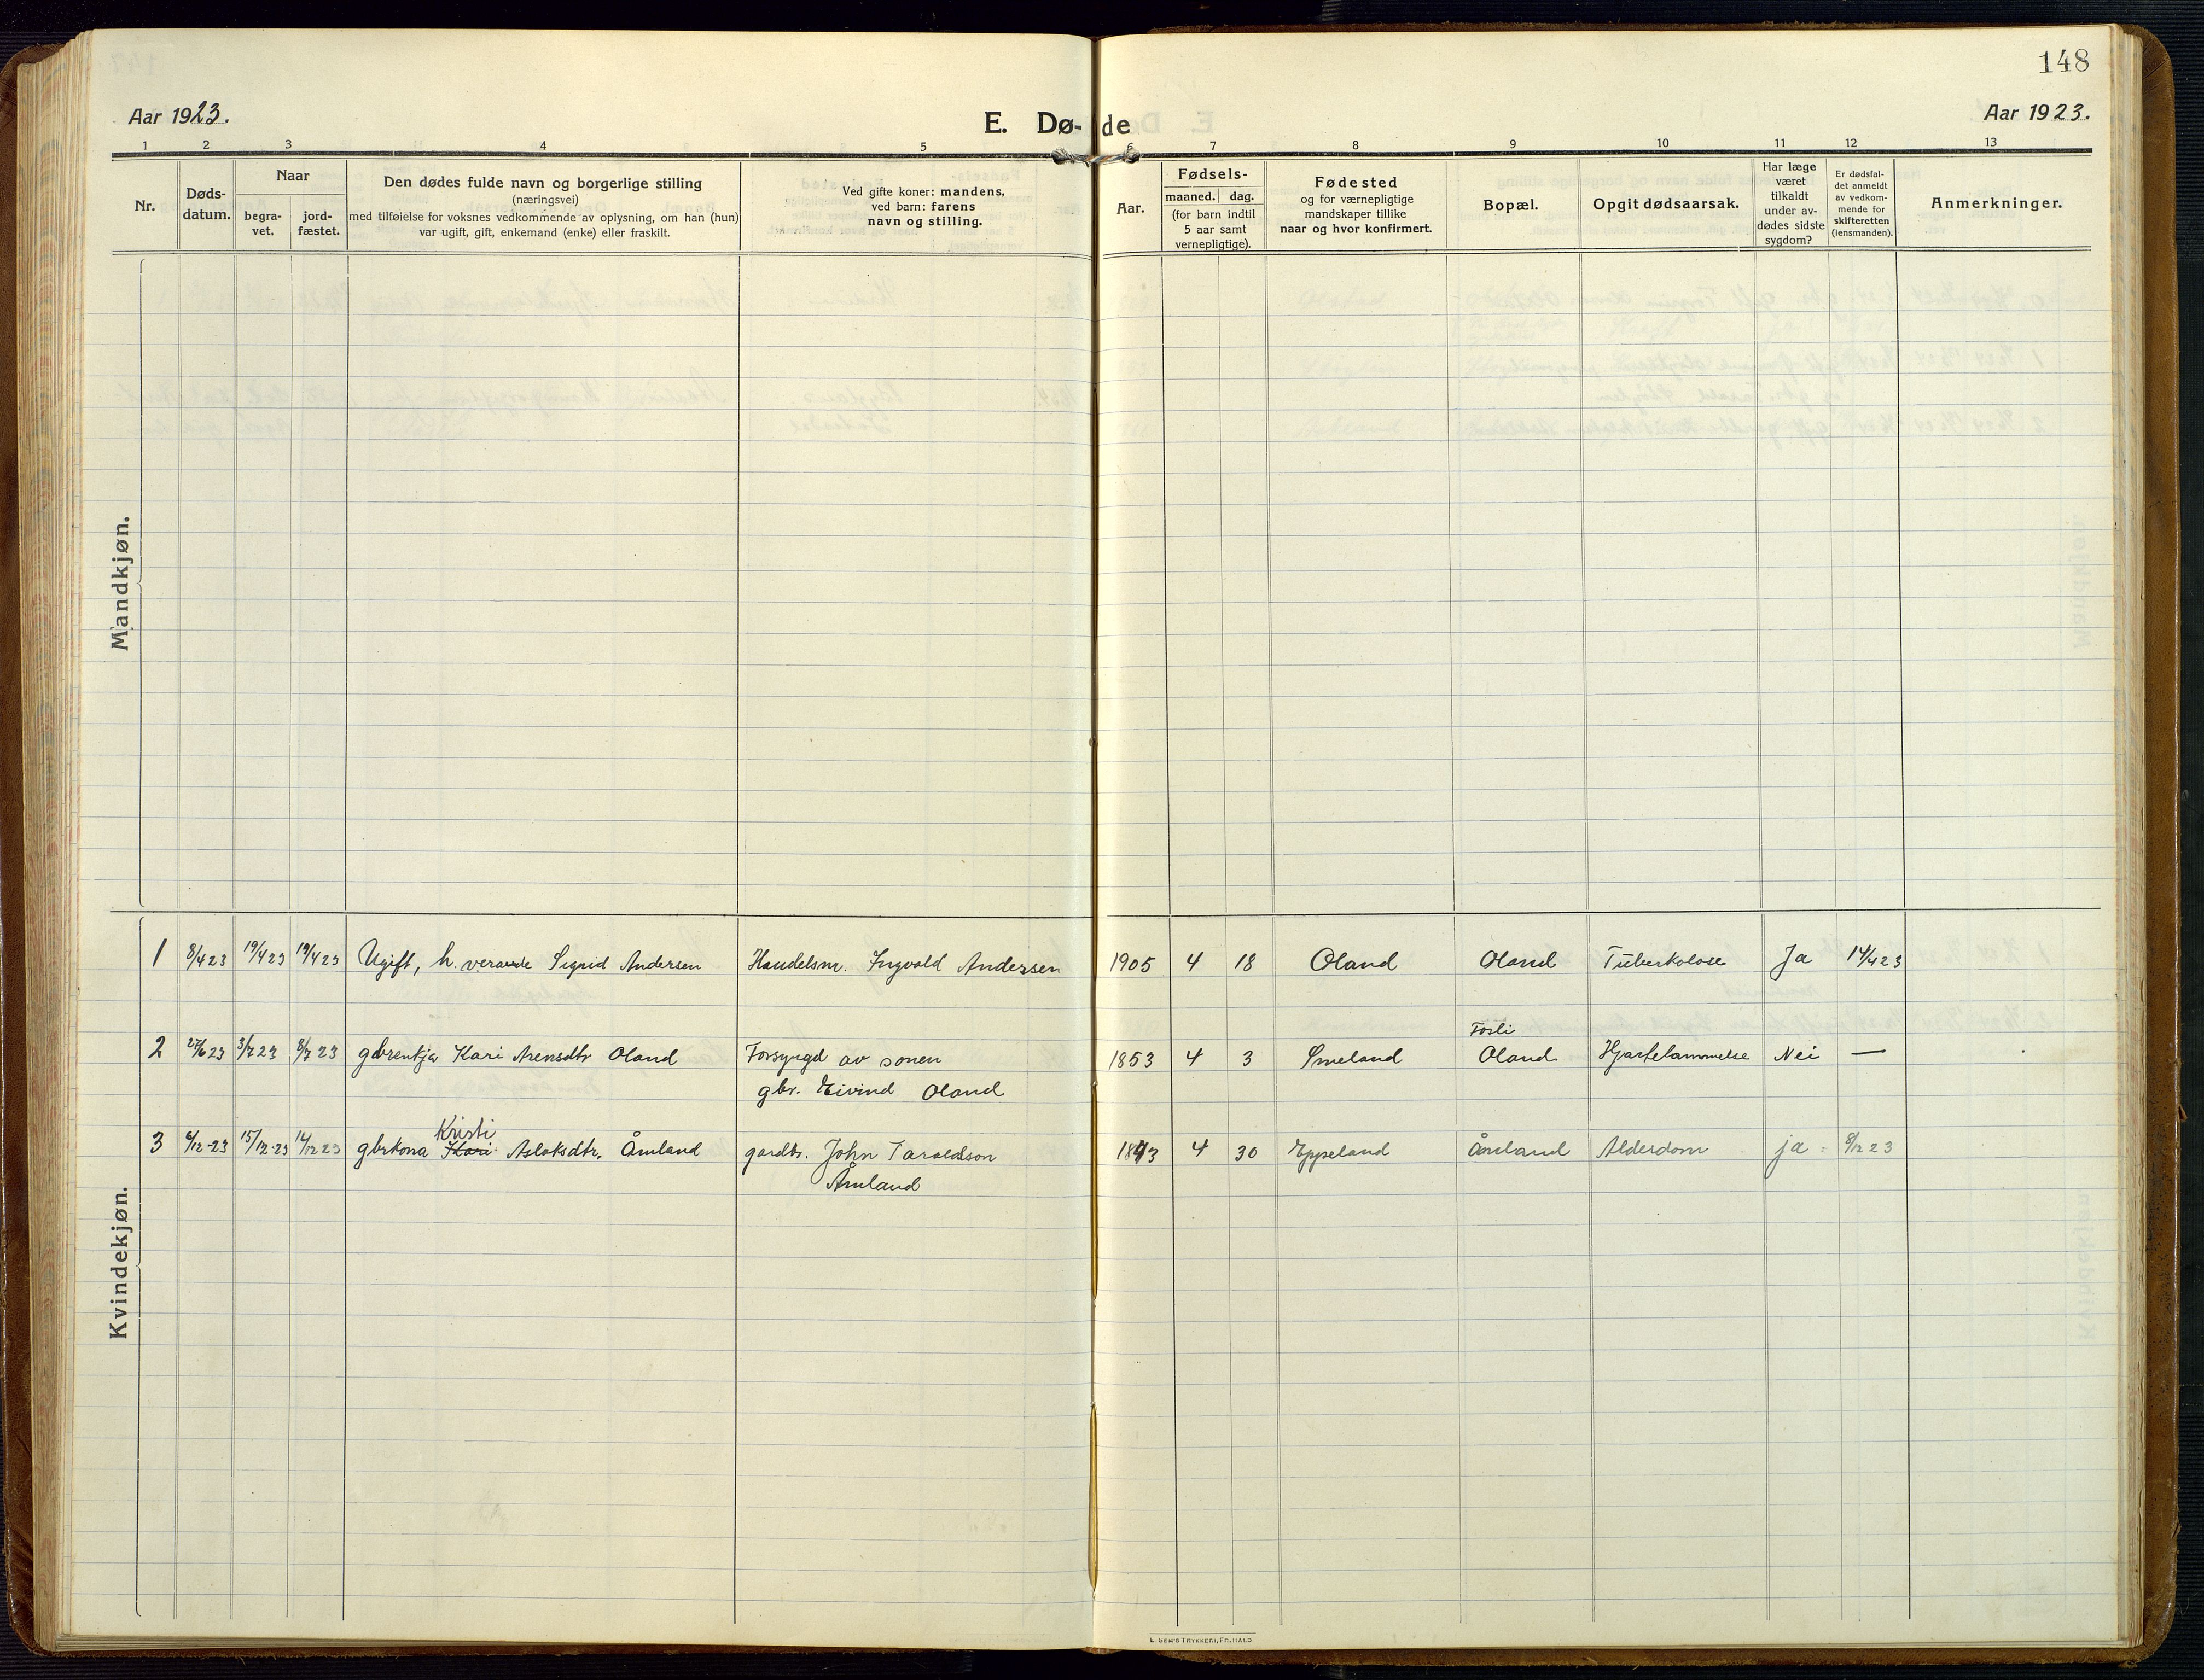 148
Aar 1923.
E. Dø-de
Aar 1923.
1 2 3 4 5 6 7 8 9 10 11 12 13
Nr.
Døds-
datum.
Naar
begra-
vet.
jord-
fæstet.
Den dødes fulde navn og borgerlige stilling
(næringsvei)
med tilføielse for voksnes vedkommende av oplysning, om han (hun)
var ugift, gift, enkemand (enke) eller fraskilt.
Ved gifte koner: mandens,
ved barn: farens
navn og stilling.
Aar.
Fødsels-
maaned. dag.
(for barn indtil
5 aar samt
vernepligtige).
Fødested
og for værnepligtige
mandskaper tillike
naar og hvor konfirmert.
Bopæl.
Opgit dødsaarsak.
Har læge
været
tilkaldt
under av-
dødes sidste
sygdom?
Er dødsfal-
det anmeldt
av vedkom-
mende for
skifteretten
(lensmanden).
Anmerkninger.
Mandkjøn.
Kvindekjøn.
1 8/4 23 19/4 23 19/4 23 Ugift, h. verande Sigrid Andersen Handelsm. Ingvald Andersen 1905 4 18 Oland Oland Tuberkolose Ja 14/4 23
Fosli
2 27/6 23 3/7 23 8/7 23 gbrenkja Kari Arensdtr Oland Forsyrgd av sonen 1853 4 3 Smeland Oland Hjartelammelse Nei —
gbr. Eivind Oland
Kristi
3 6/12-23 15/12-23 14/12 23 gbrkona Kari Aslaksdtr. Åmland gardbr. John Taraldsson 1843 4 30 Eppeland Åmland Alderdom ja 8/12 23
Åmland